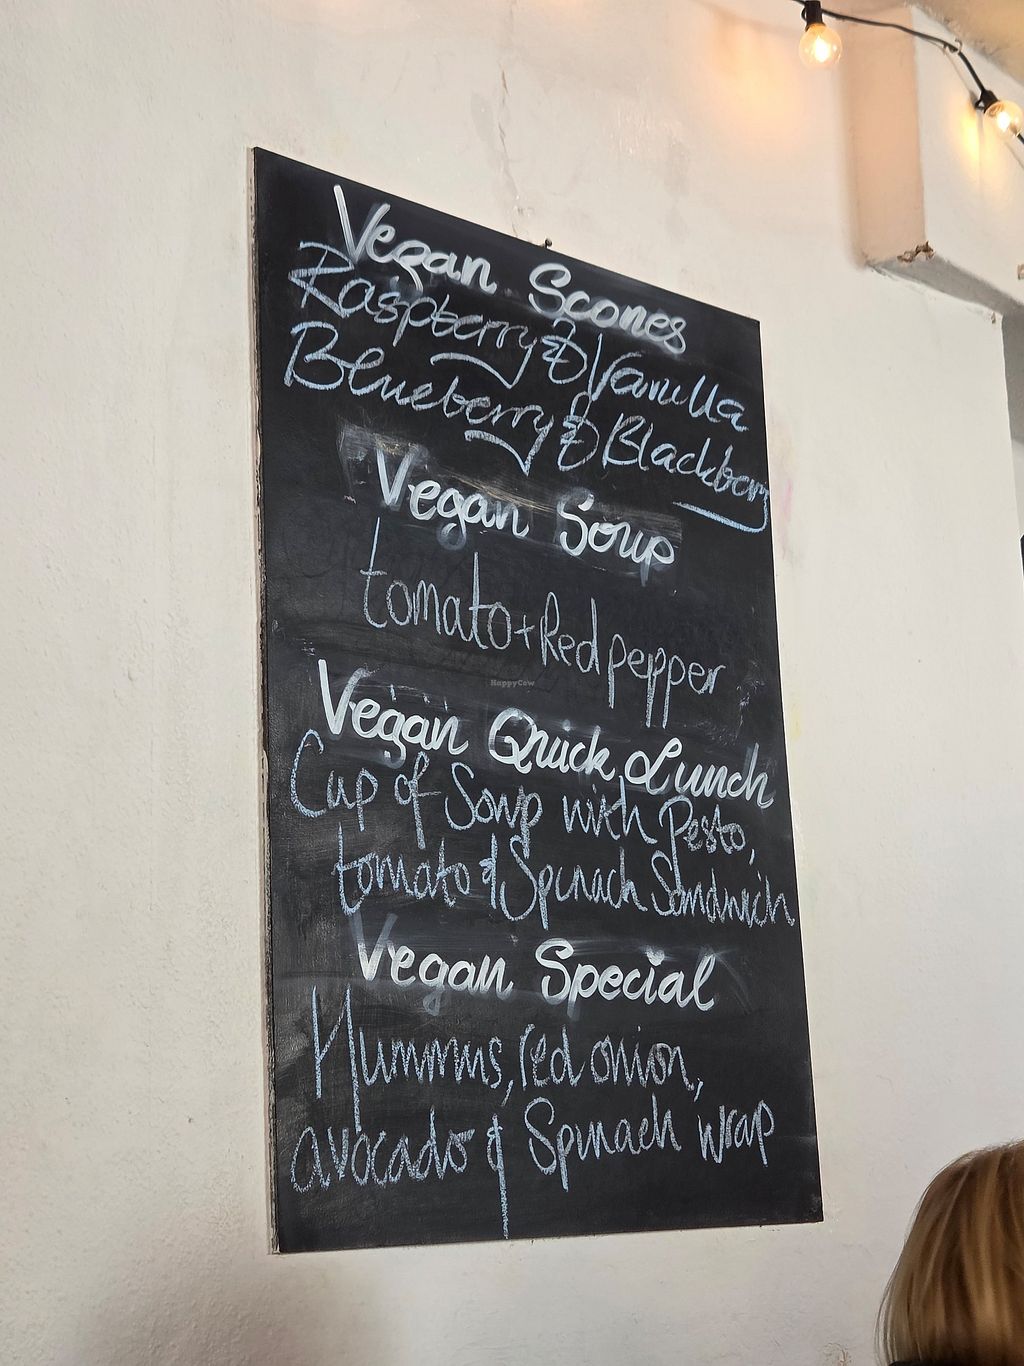 Vegan Scones
Raspberry & Vanilla
Blueberry & Blackberry
Vegan Soup
tomato + Red pepper
HappyCow
Vegan Quick Lunch
Cup of Soup with Pesto,
tomato & Spinach Sandwich
Vegan Special
Hummus, red onion,
avocado & Spinach wrap